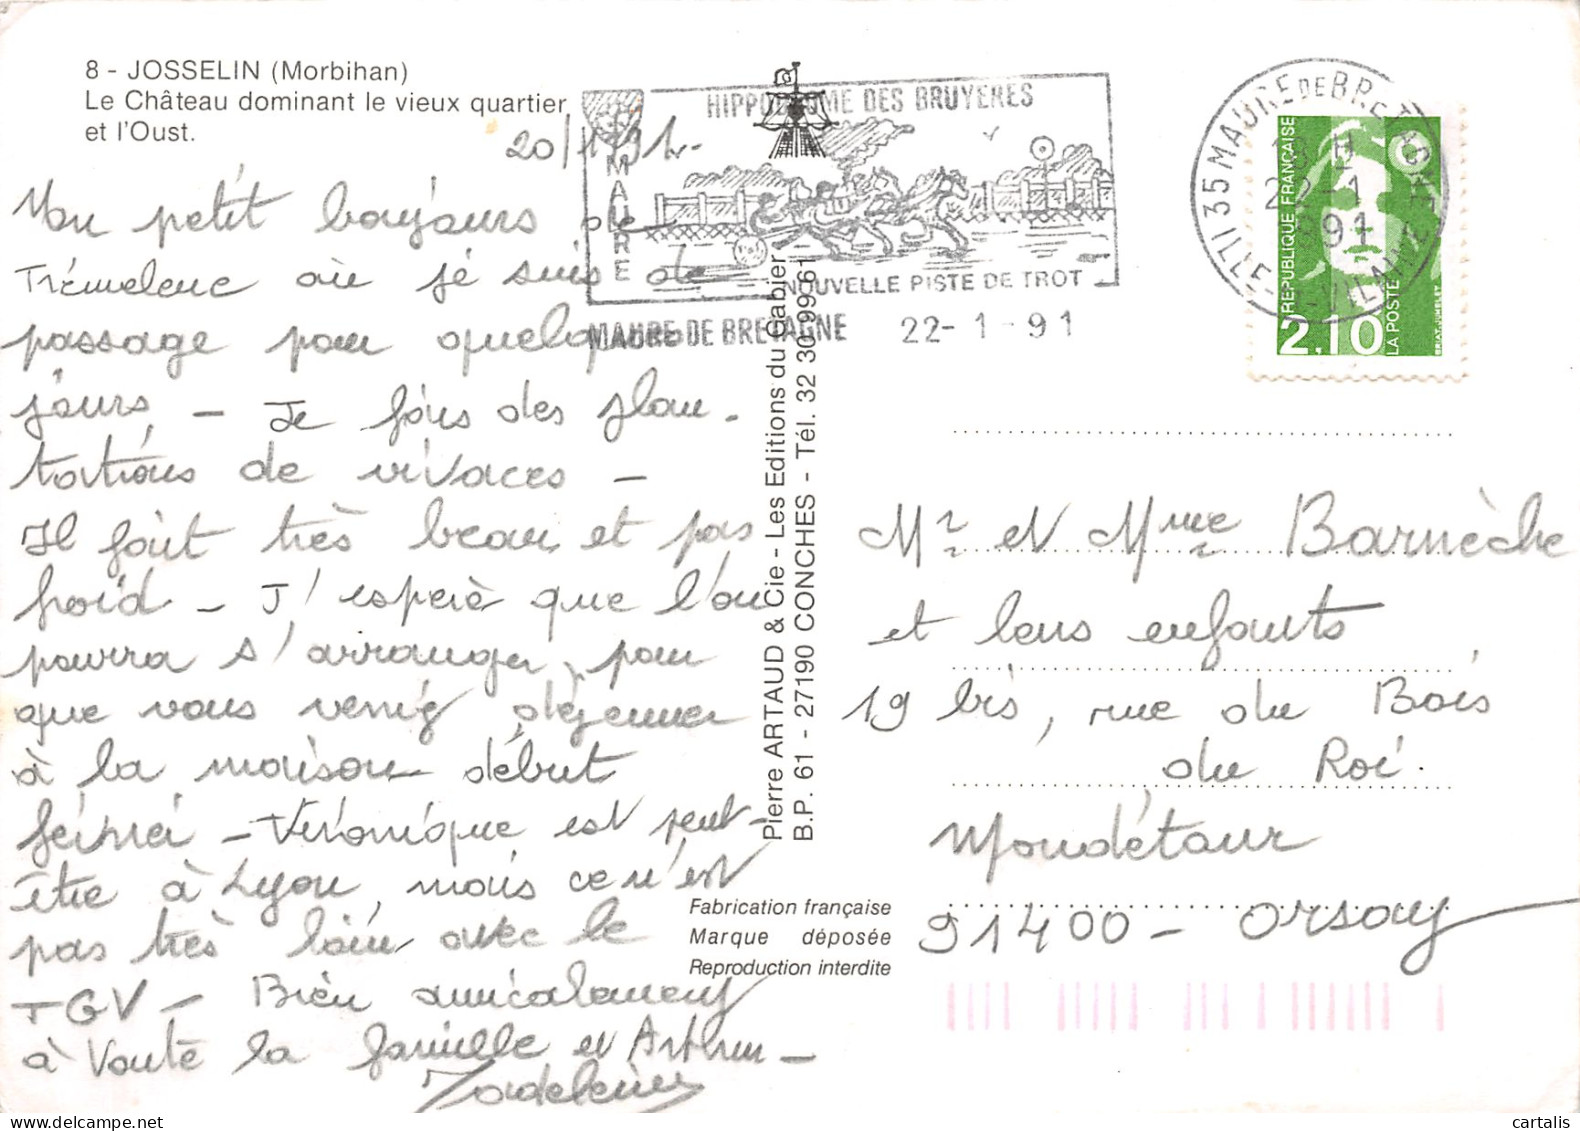 8 - JOSSELIN (Morbihan)
Le Château dominant le vieux quartier
et l'Oust.
20/1/91.
Un petit bonjour de
Trémeleuc où je suis de
passage pour quelques
jours, - Je fais des plan-
tations de vivaces -
Il fait très beau et pas
froid - J'espère que l'on
pourra s'arranger pour
que vous veniez déjeuner
à la maison début
février - Véronique est peut-
être à Lyon, mais ce n'est
pas très loin avec le
TGV - Bien amicalement
à toute la famille et Arthur -
Madeleine
Pierre ARTAUD & Cie - Les Editions du Gabier
B.P. 61 - 27190 CONCHES - Tél. 32 30 99 61
Fabrication française
Marque déposée
Reproduction interdite
HIPPODROME DES BRUYERES
MAURE
NOUVELLE PISTE DE TROT
MAURE DE BRETAGNE 22-1-91
35 MAURE DE BRETAGNE
ILLE-ET-VILAINE
18 H
22-1
1991
REPUBLIQUE FRANÇAISE
2,10
LA POSTE
BRIAT-JUMELET
Mr et Mme Barnèche
et leurs enfants
19 bis, rue du Bois
du Roi.
Mondétour
91400 - Orsay
cartalis